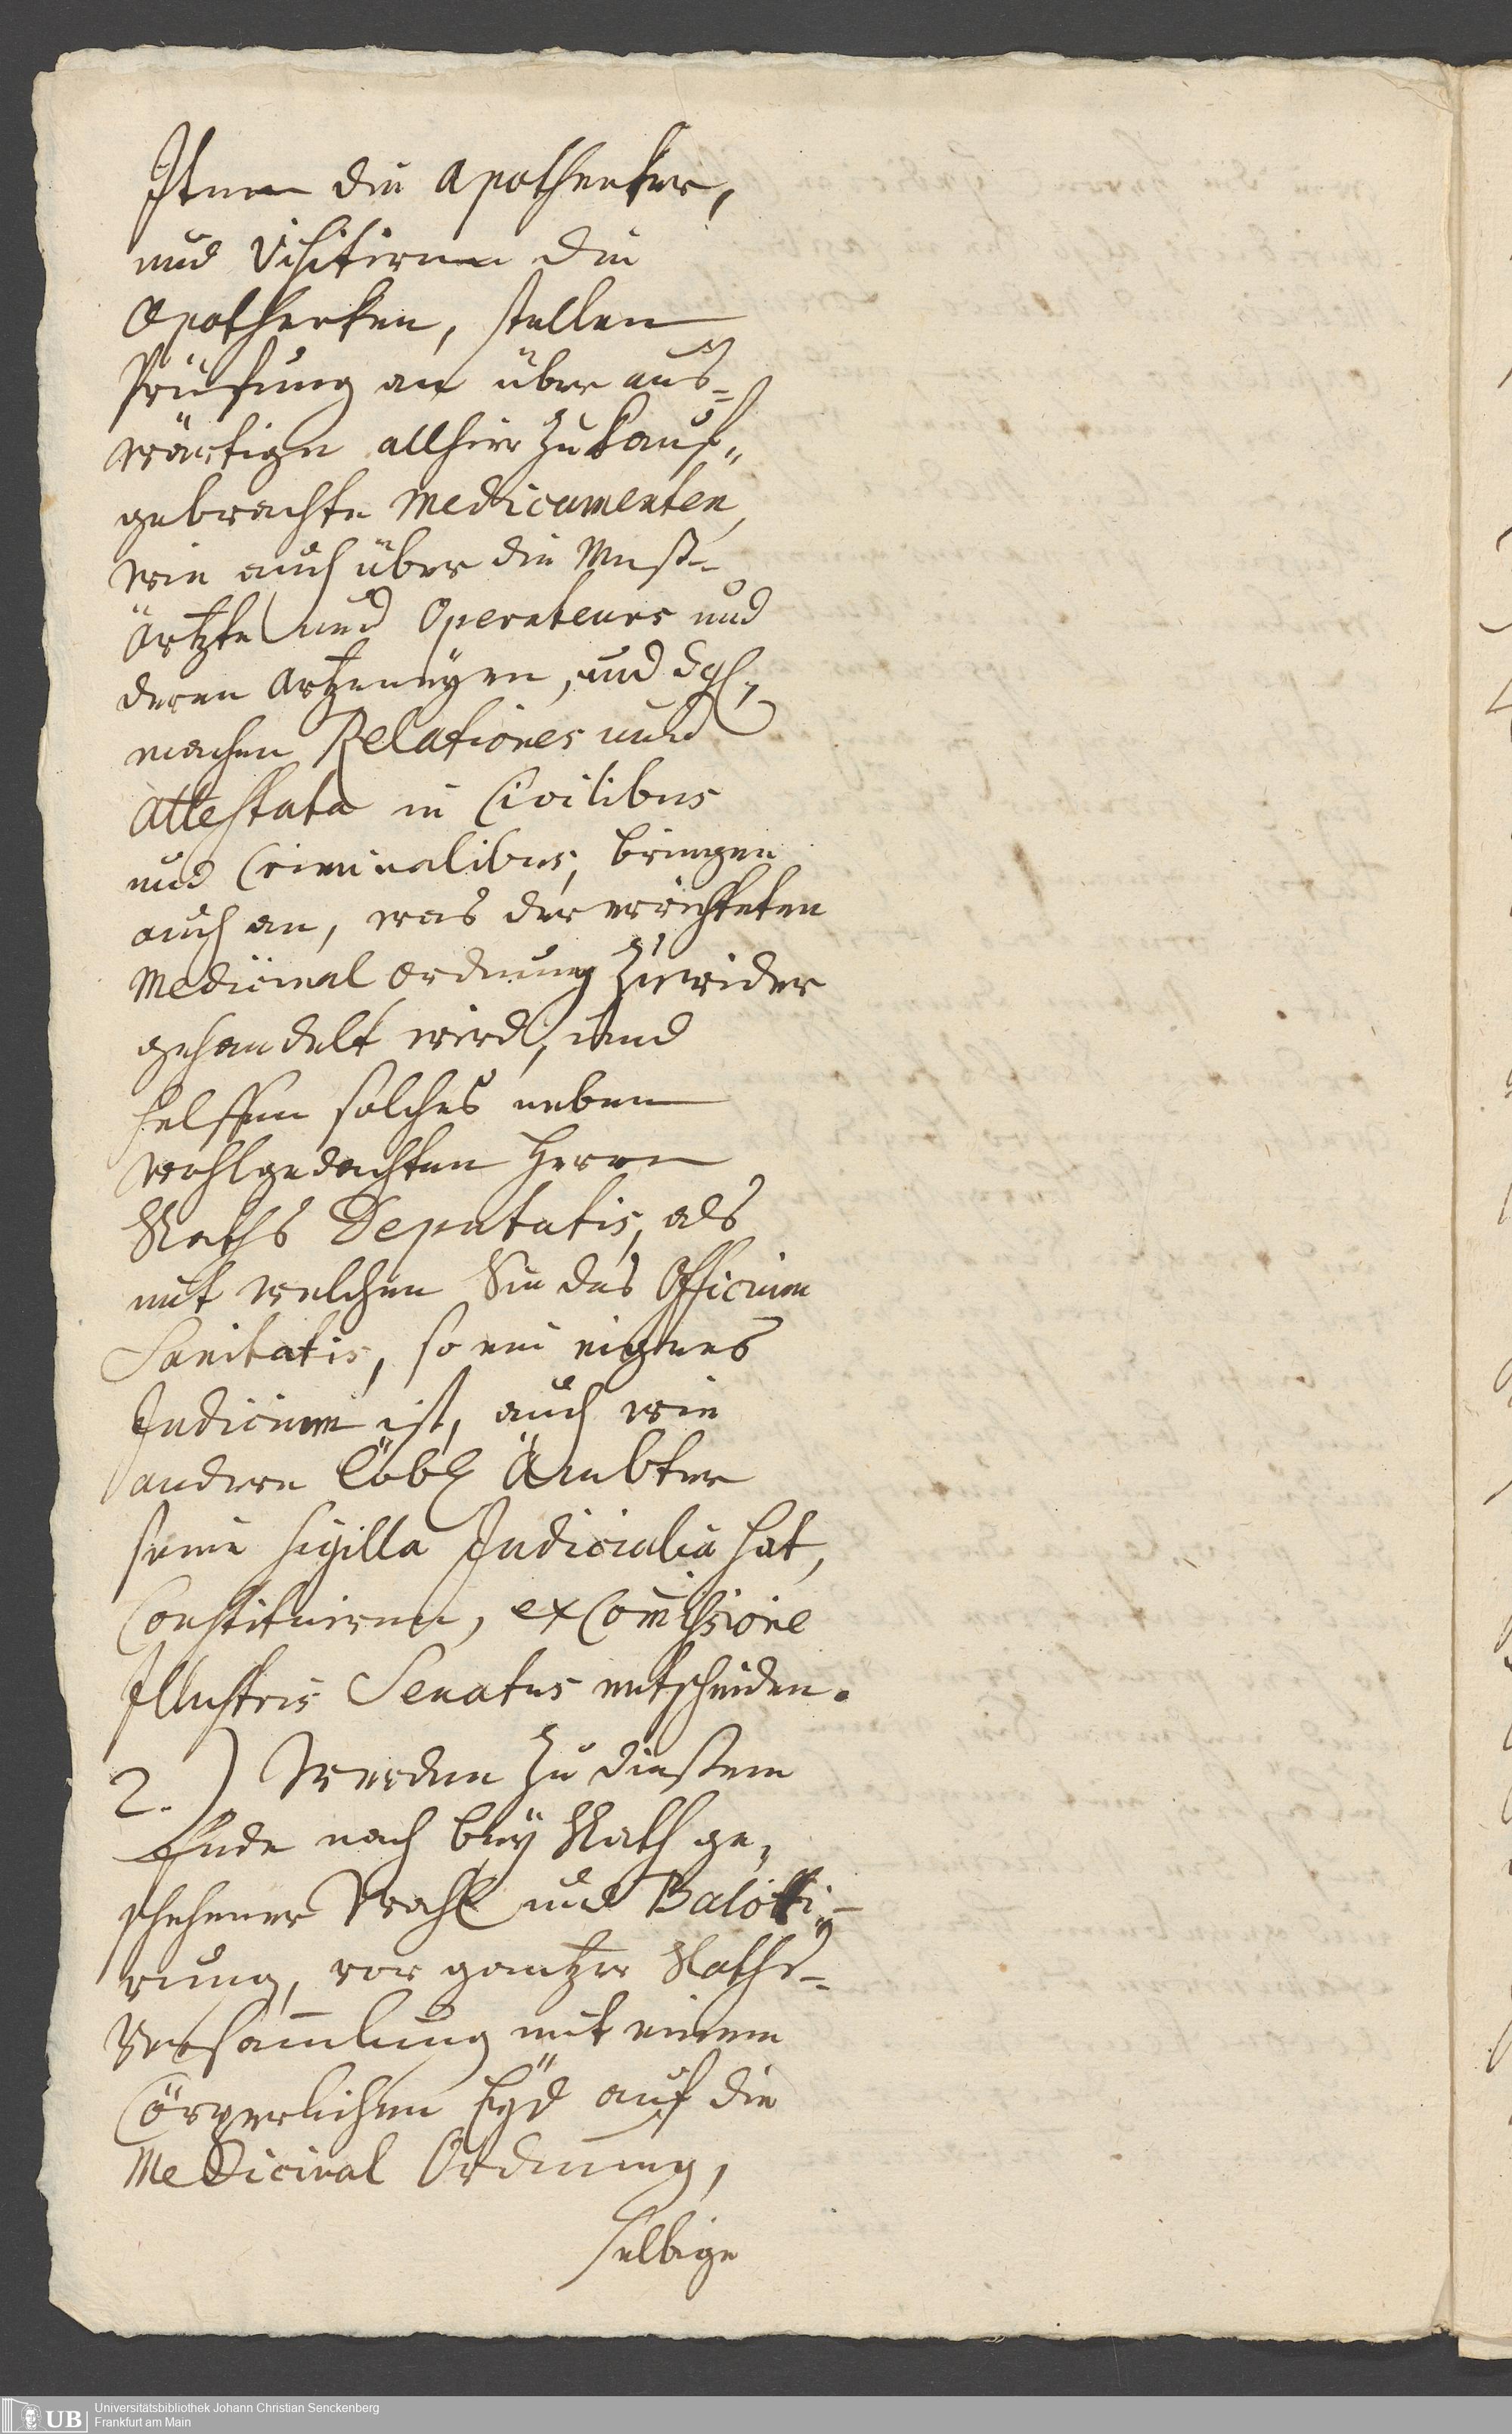 Item die Apothecker,
und Visitiren die
Apothecken, stellen
Prüfung an über aus-
wärtige allhier zu kauf„
gebrachte Medicamenten,
wie auch über die Meß-
Ärtzte und Operateurs und
deren Artzeneyen, und dgl.,
machen Relationes und
Attestata in Civilibus
und Criminalibus, bringen
auch an, was der errichteten
Medicinal Ordnung zuwider
gehandelt wird, und
helffen solches neben
wohlgedachten Herrn
Raths Deputatis, als
mit welchen Sie das Officium
Sanitatis, so ein eigenes
Judicium ist, auch wie
andere Löbl Ämbter
seine sigilla Judicialia hat,
Constituiren, ex Com̅issione
Illustris Senatus entscheiden.
2.) Werden zu dießem
Ende nach bey Rath ge„
schehener Wahl und Balotti„
rung, vor gantzer Raths-
Versam̅lung mit einem
Cörperlichen Eyd auf die
Medicinal Ordnung,
selbige
UB
Universitätsbibliothek Johann Christian Senckenberg
Frankfurt am Main